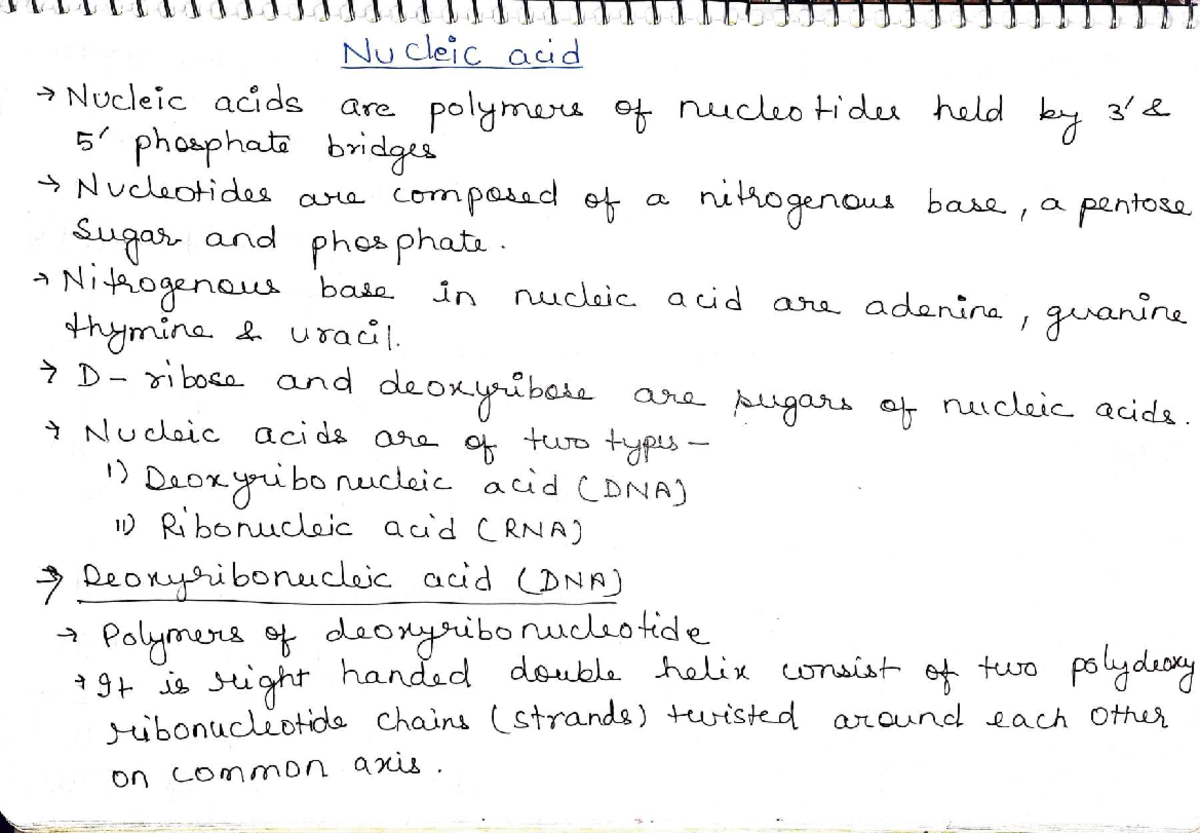 Nucleic acid
→ Nucleic acids are polymers of nucleotides held by 3' &
5' phosphate bridges
→ Nucleotides are composed of a nitrogenous base, a pentose
Sugar and phosphate.
→ Nitrogenous base in nucleic acid are adenine, guanine
thymine & uracil.
→ D-ribose and deoxyribose are sugars of nucleic acids.
→ Nucleic acids are of two types –
i) Deoxyribonucleic acid (DNA)
ii) Ribonucleic acid (RNA)
→ Deoxyribonucleic acid (DNA)
→ Polymers of deoxyribonucleotide
→ It is right handed double helix consist of two polydeoxy
ribonucleotide chains (strands) twisted around each other
on common axis.